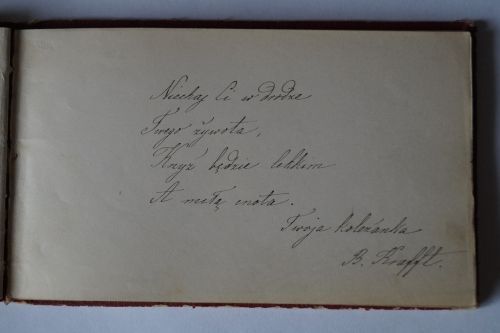 Niechaj Ci w drodze
Twego żywota,
Krzyż będzie lekkim
A metą cnota.
Twoja koleżanka
B. Krafft.